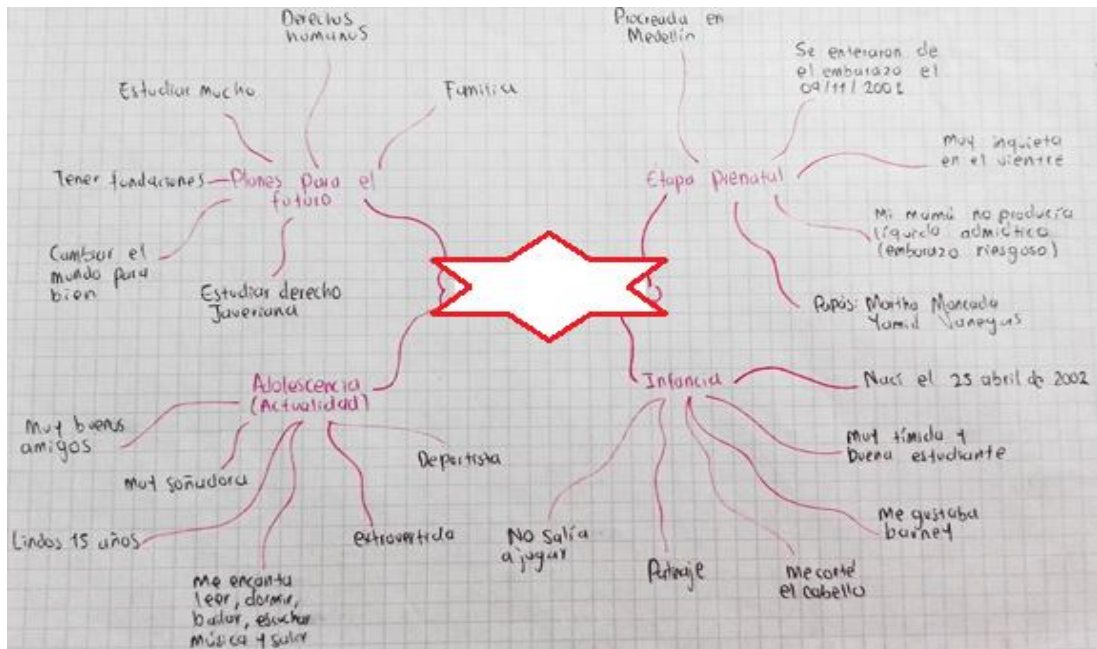 Derechos
humanos
Estudiar mucho
Familia
Tener fundaciones
Planes para el
futuro
Cambiar el
mundo para
bien
Estudiar derecho
Javeriana
Procreada en
Medellín
Se enteraron de
el embarazo el
09/11/2001
Muy inquieta
en el vientre
Etapa prenatal
Mi mamá no producía
líquido admiótico
(embarazo riesgoso)
Papás: Martha Moncada
Yamid Vanegas
Adolescencia
(Actualidad)
Muy buenos
amigos
Muy soñadora
Lindos 15 años
Me encanta
leer, dormir,
bailar, escuchar
música y salir
extrovertida
Deportista
Infancia
Nací el 25 abril de 2002
Muy tímida y
buena estudiante
Me gustaba
barney
Me corté
el cabello
Patinaje
No salía
a jugar